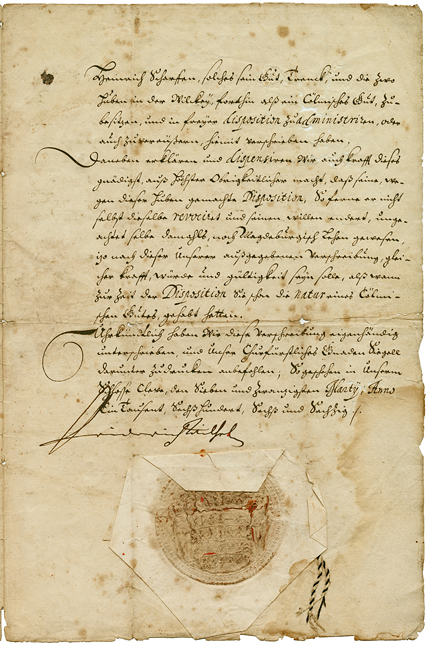 Heinrich Scharffen, solches sein Gut, Tranck, und die Zwo
Huben in der Milckeÿ, forthin alß ein Cölmisches Gut, Zu-
besitzen, und in freyer disposition Zu administriren, oder
auch Zu vereüßern, hiemit verschrieben haben.
Daneben erklären und dispensiren Wir auch krafft dieses
gnädigst, auß Höchster Obrigkeitlicher macht, daß seine, we-
gen dieser Huben gemachte Disposition, So ferne er nicht
selbst dieselbe revociret und seinen willen endert, unge-
achtet selbe damahls, noch Magdeburgisch Lehen gewesen,
izo nach dieser Unserer außgegebenen Verschreibung, glei-
cher krafft, würde und gültigkeit seÿn solle, alß wann
zur Zeit der Disposition Sie schon die natur eines Cölmi-
schen Gutes, gehabt hetten.
Uhrkündtlich haben Wir diese Verschreibung eigenhändig
unterschrieben, und Unser Churfürstliches Gnaden Siegell
darunter Zudrucken anbefohlen, So geschehen in Unserm
Schlosse Cleve, den Sieben und Zwanzigsten Martÿ, Anno
Ein Tausent, Sechß Hundert, Sechß und Sechzig
Friderich Wilhelm